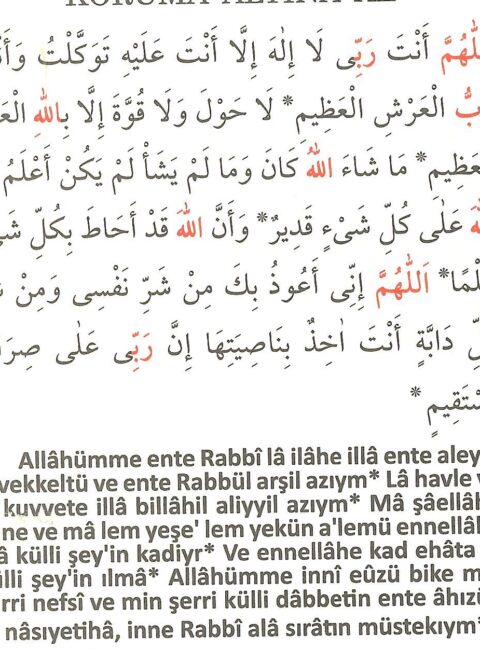 اَللّٰهُمَّ أَنْتَ رَبِّى لَا إِلٰهَ إِلَّا أَنْتَ عَلَيْهِ تَوَكَّلْتُ
رَبُّ الْعَرْشِ الْعَظِيمِ* لَا حَوْلَ وَلَا قُوَّةَ إِلَّا بِاللّٰهِ
الْعَظِيمِ* مَا شَاءَ اللّٰهُ كَانَ وَمَا لَمْ يَشَأْ لَمْ يَكُنْ أَعْلَمُ
عَلٰى كُلِّ شَىْءٍ قَدِيرٌ* وَأَنَّ اللّٰهَ قَدْ أَحَاطَ بِكُلِّ
عِلْمًا* اَللّٰهُمَّ إِنِّى أَعُوذُ بِكَ مِنْ شَرِّ نَفْسِى وَمِنْ
دَابَّةٍ أَنْتَ اٰخِذٌ بِنَاصِيَتِهَا إِنَّ رَبِّى عَلٰى
مُسْتَقِيمٍ*
Allâhümme ente Rabbî lâ ilâhe illâ ente aley
vekkeltü ve ente Rabbül arşil azıym* Lâ havle v
kuvvete illâ billâhil aliyyil azıym* Mâ şâellâh
ne ve mâ lem yeşe' lem yekün a'lemü ennellâh
â külli şey'in kadiyr* Ve ennellâhe kad ehâta
lli şey'in ılmâ* Allâhümme innî eûzü bike m
rri nefsî ve min şerri külli dâbbetin ente âhızü
nâsıyetihâ, inne Rabbî alâ sırâtın müstekıym*